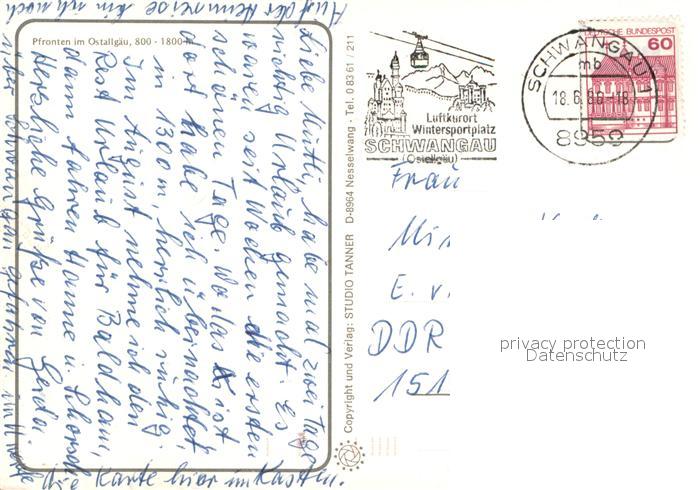 Pfronten im Ostallgäu, 800 - 1800 m
Auf der Heimreise bin ich noch
Liebe Mutti, habe mal zwei Tage
richtig Urlaub gemacht. Es
waren seit Wochen die ersten
schönen Tage. Wo das X ist
dort habe ich übernachtet,
in 1300 m, herrlich ruhig.
Im August nehme ich den
Rest Urlaub für Baldham,
dann fahren Hanne u.
Herzliche Grüße von Gerda.
über Schwangau gefahren
die Karte hier im Kasten.
Copyright und Verlag: STUDIO TANNER D-8964 Nesselwang - Tel. 0 83 61 / 211
Luftkurort
Wintersportplatz
SCHWANGAU
(Ostallgäu)
SCHWANGAU 1
mb
18.6.86-18
8959
DEUTSCHE BUNDESPOST
60
Frau
E. v.
DDR
151
privacy protection
Datenschutz